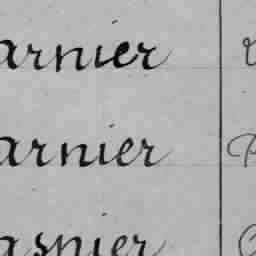 arnier
arnier
asnier